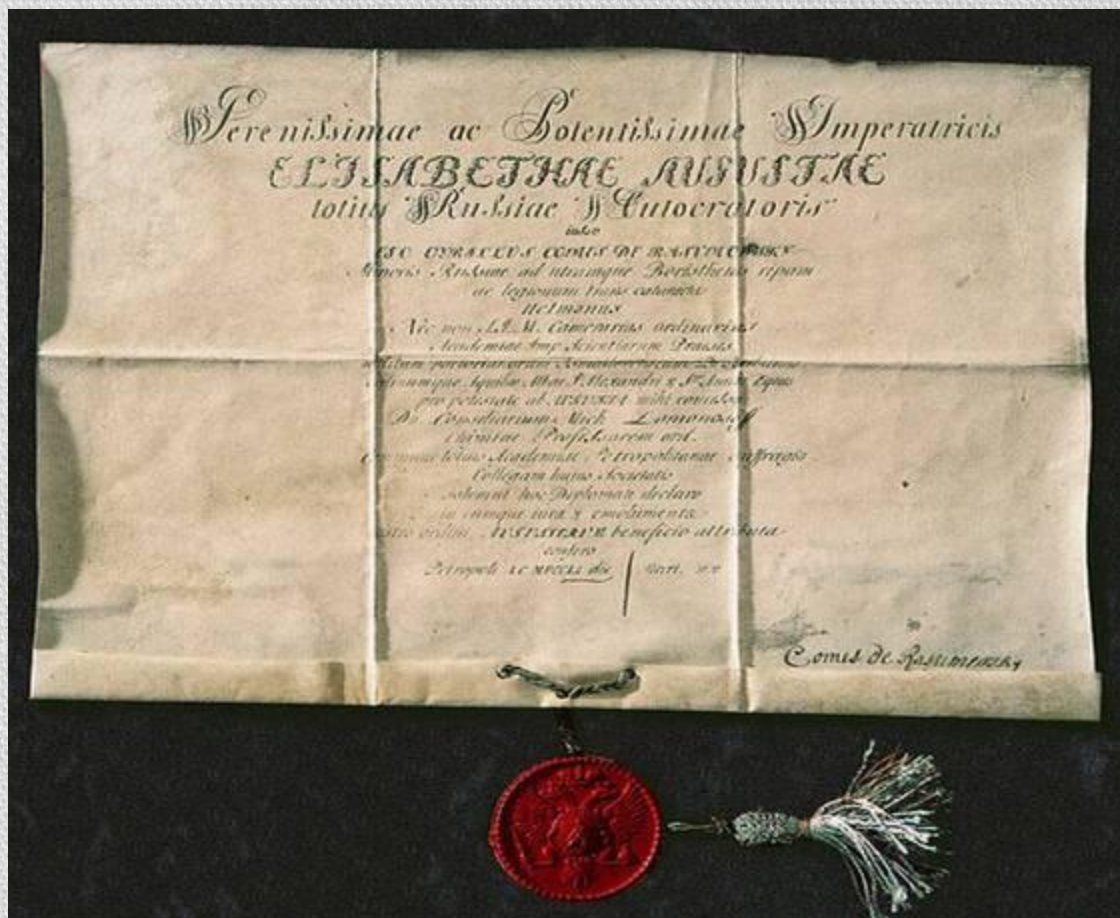 Serenissimae ac Potentissimae Imperatricis
ELISABETHAE AUGUSTAE
totius Russiae Autocratoris
iussu
EGO CYRILLUS COMES DE RASUMOWSKY
Minoris Russiae ad utramque Boristhenis ripam
ac legionum trans
Hetmanus
Nec non S.I.M. Camerarius ordinarius
Academiae Imp Scientiarum Praeses
Aquilae Albae S. Alexandri & Stae Annae Eques
pro potestate ab AUGUSTA mihi concessa
Dn Consiliarium Mich Lomonosoff
Chimiae Professorem ord.
totius Academiae Petropolitanae suffragio
Collegam huius Societatis
solemni hoc Diplomate declaro
in eumque iura & emolumenta
ordini AUGUSTAE beneficio attributa
confero
Petropoli die
Comes de Rasumowsky